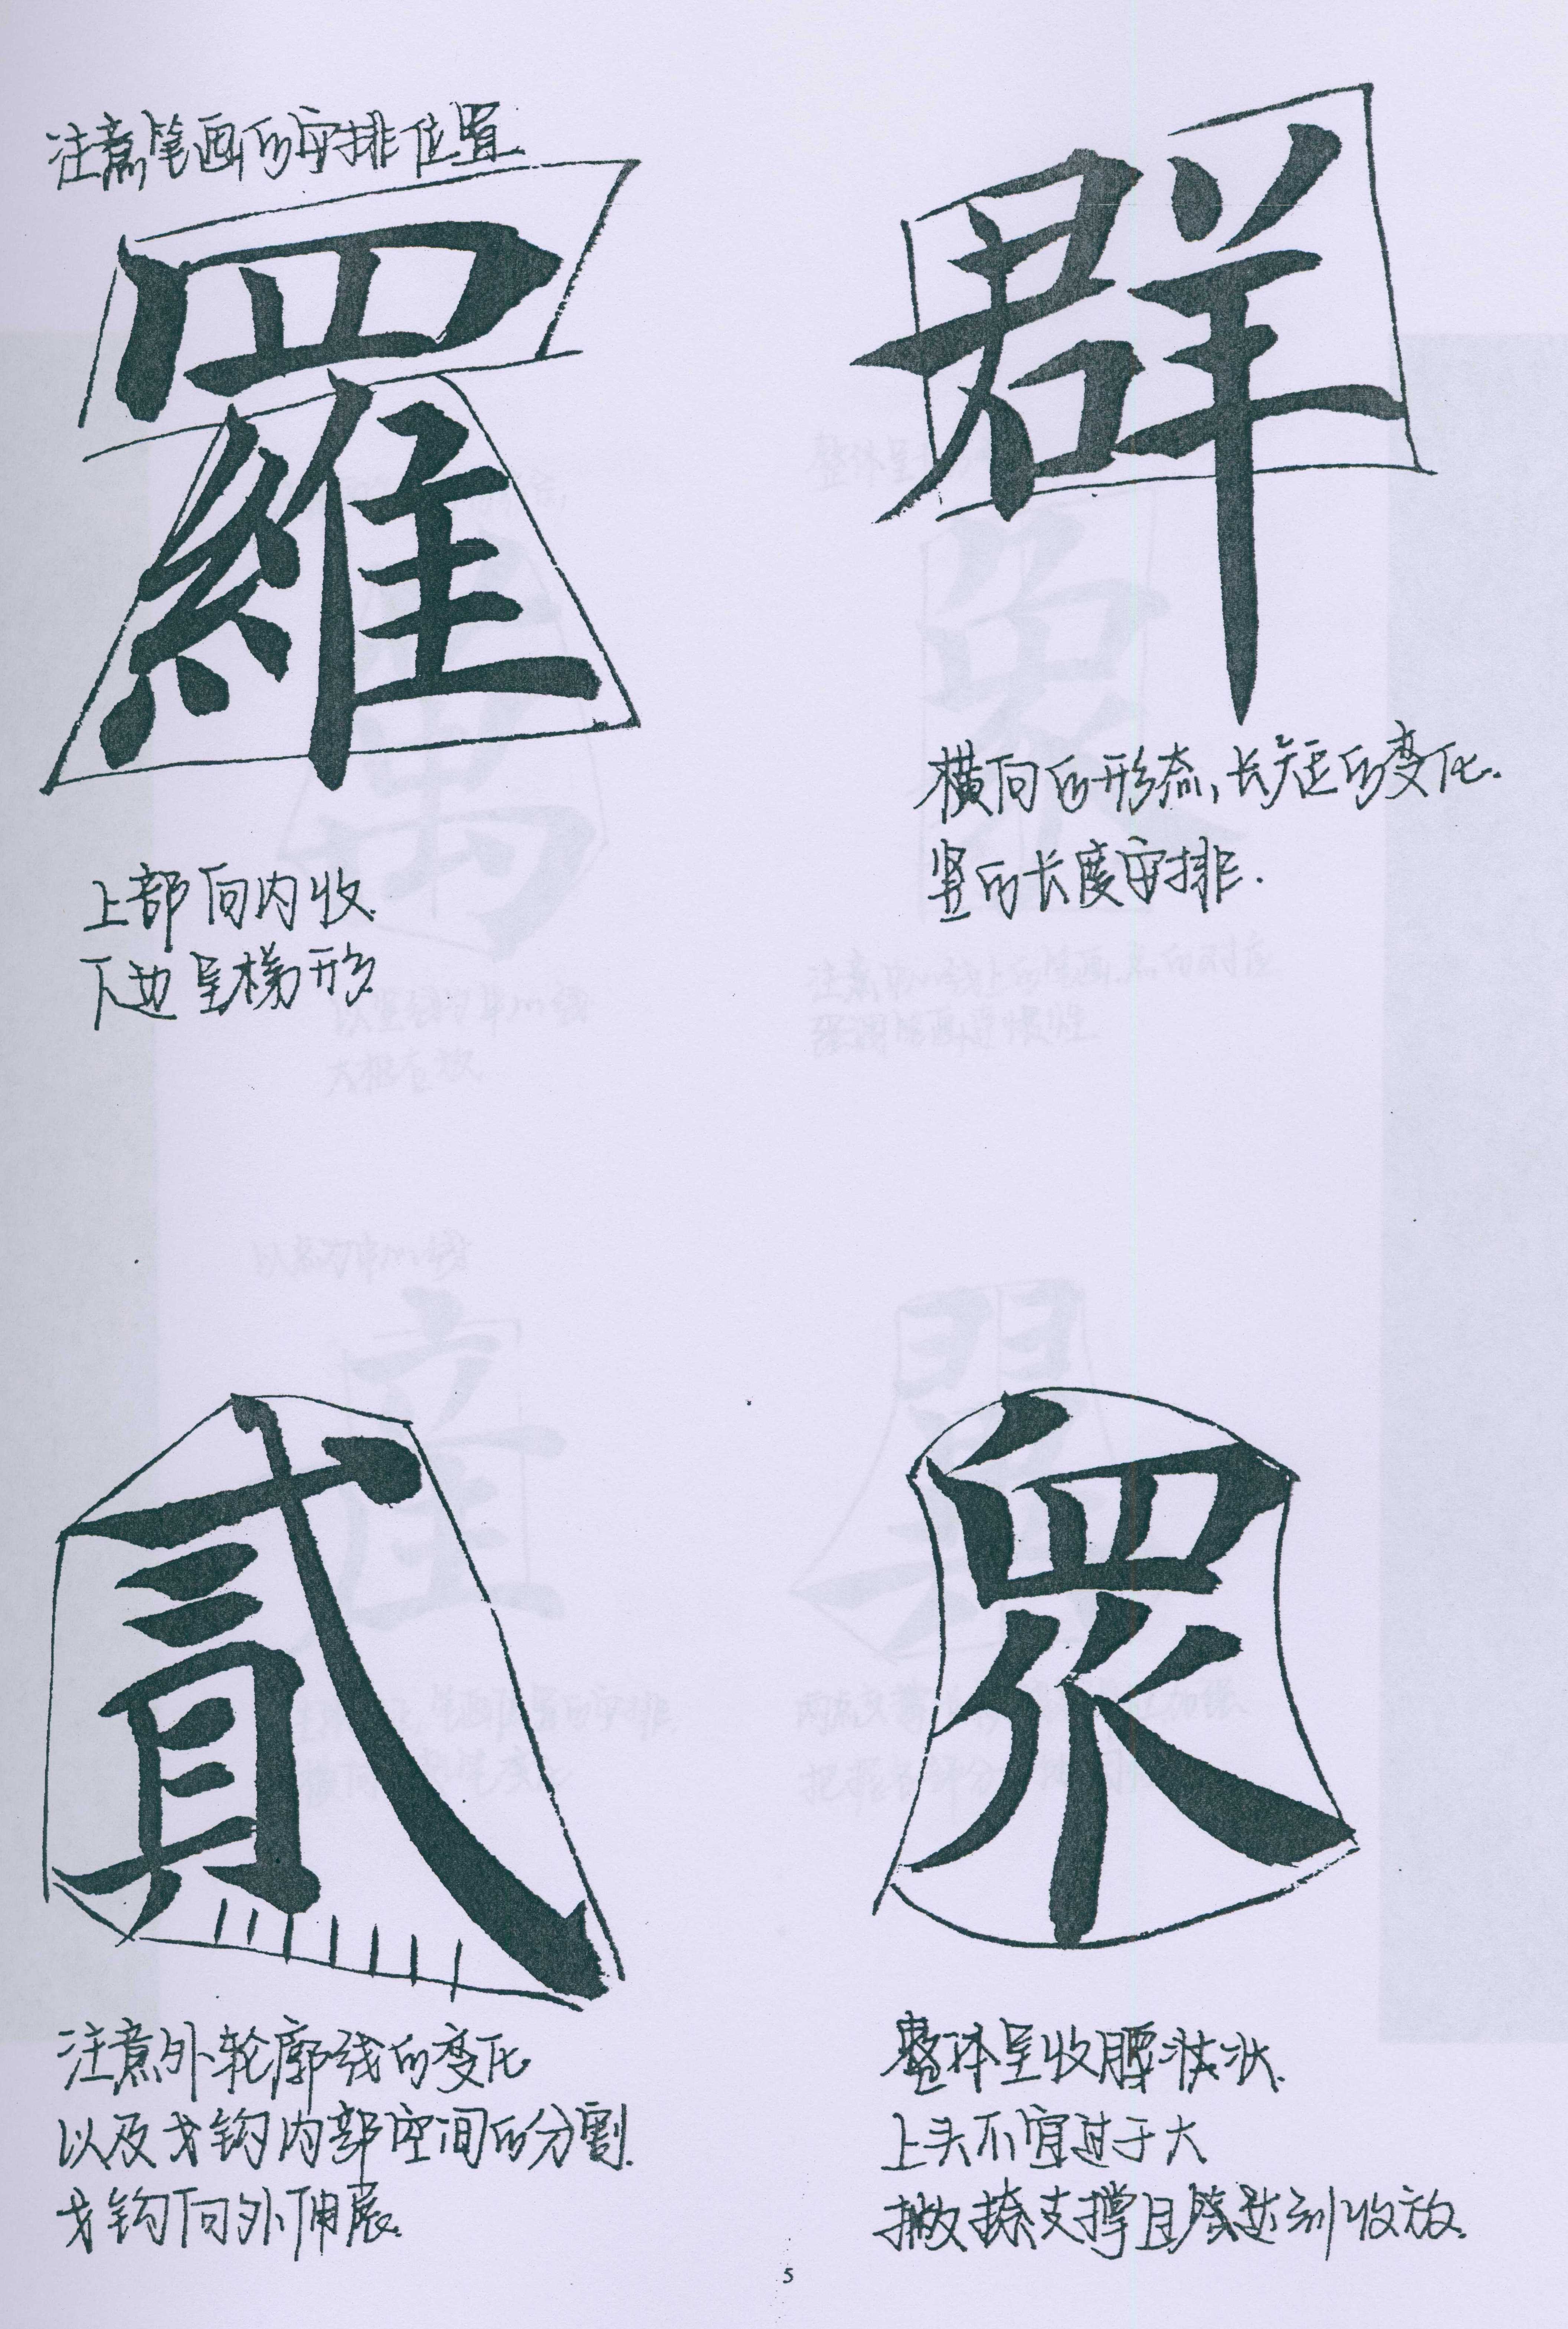 注意笔画的安排位置
羅
上部向内收.
下边呈梯形.
群
横向的形态,长短的变化.
竖的长度安排.
貳
注意外轮廓线的变化
以及戈钩内部空间的分割.
戈钩向外伸展.
眾
整体呈收腰状.
上头不宜过于大
撇捺支撑且达到收放.
5